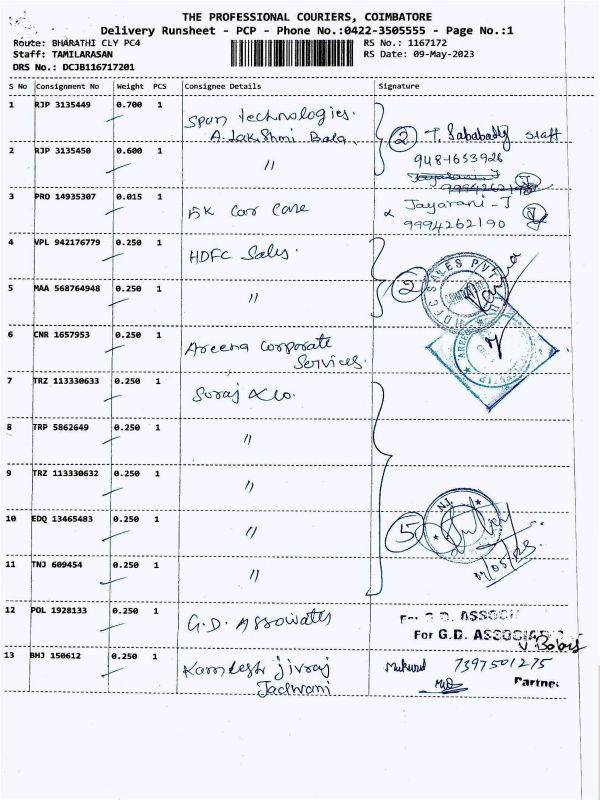 THE PROFESSIONAL COURIERS, COIMBATORE
Delivery Runsheet - PCP - Phone No.:0422-3505555 - Page No.:1
Route: BHARATHI CLY PC4 RS No.: 1167172
Staff: TAMILARASAN RS Date: 09-May-2023
DRS No.: DCJB116717201
S No Consignment No Weight PCS Consignee Details Signature
1 RJP 3135449 0.700 1 Spun Technologies.
A. Lakshmi Bala. 2 T. Sababathy staff
9481653926
2 RJP 3135450 0.600 1 "
Jayarani J
9994262190
3 PRO 14935307 0.015 1 AK Car Care Jayarani - J
9994262190
4 VPL 942176779 0.250 1 HDFC Sales.
5 MAA 568764948 0.250 1 " 2 HDFC SALES PVT
6 CNR 1657953 0.250 1 Areena Corporate
Services.
7 TRZ 113330633 0.250 1 Soraj & Co.
8 TRP 5862649 0.250 1 "
9 TRZ 113330632 0.250 1 "
10 EDQ 13465483 0.250 1 " 5
11 TNJ 609454 0.250 1 "
12 POL 1928133 0.250 1 G.D. Associates
For G.D. ASSOCIA
13 BHJ 150612 0.250 1 Kamlesh Jivraj
Jadwani Mukund 7397501275
Partner